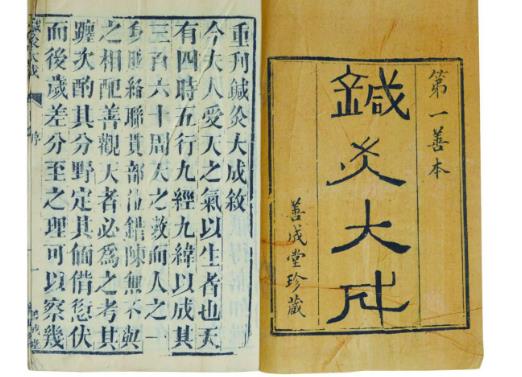 第一善本
鍼灸大成
善成堂珍藏
重刊鍼灸大成敘
今夫人受天之氣以生者也天
有四時五行九經九緯以成其
三百六十周天之数而人之一
身脈絡聯貫部位錯陳無不與
之相配善觀天者必為之考其
躔次酌其分野定其
伏
而後歲差分至之理可以察幾
鍼灸大成
序
一